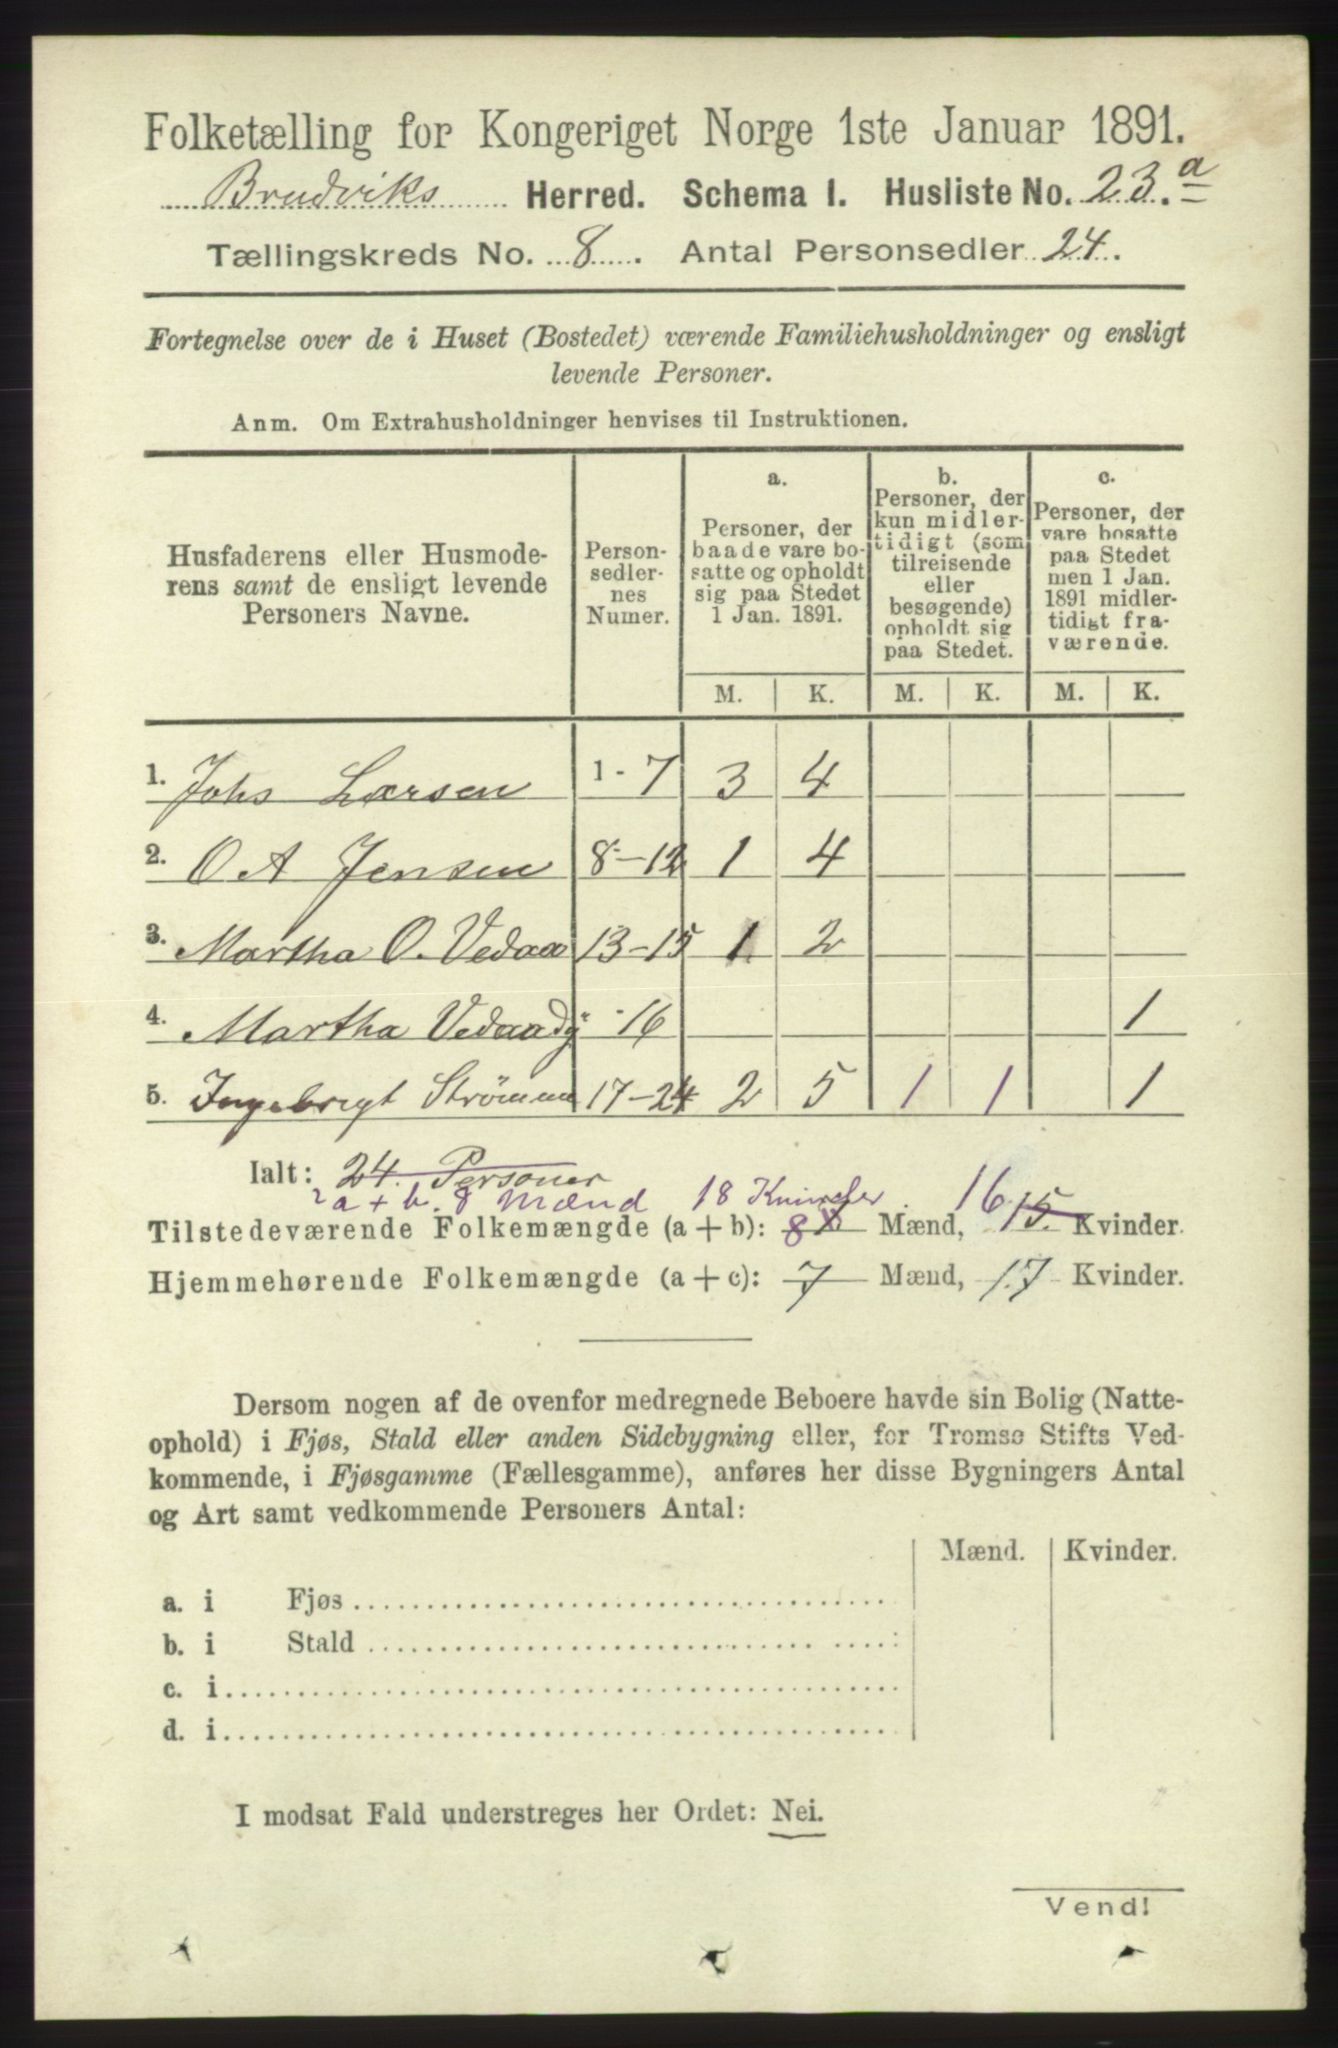 Folketælling for Kongeriget Norge 1ste Januar 1891.
Brudviks Herred. Schema I. Husliste No. 23.a
Tællingskreds No. 8. Antal Personsedler 24.
Fortegnelse over de i Huset (Bostedet) værende Familiehusholdninger og ensligt
levende Personer.
Anm. Om Extrahusholdninger henvises til Instruktionen.
Husfaderens eller Husmode-
rens samt de ensligt levende
Personers Navne.
Person-
sedler-
nes
Numer.
a.
Personer, der
baade vare bo-
satte og opholdt
sig paa Stedet
1 Jan. 1891.
b.
Personer, der
kun midler-
tidigt (som
tilreisende
eller
besøgende)
opholdt sig
paa Stedet.
c.
Personer, der
vare bosatte
paa Stedet
men 1 Jan.
1891 midler-
tidigt fra-
værende.
M. K. M. K. M. K.
1. Johs Larsen 1-7 3 4
2. O A Jensen 8-12 1 4
3. Martha O. Vedaa 13-15 1 2
4. Martha Vedaa 16 1
5. Ingebrigt Strömme 17-24 2 5 1 1 1
Ialt: 24. Personer
a + b. 8 Mænd 18 Kvinder.
Tilstedeværende Folkemængde (a + b): 8 Mænd, 16 15. Kvinder.
Hjemmehørende Folkemængde (a + c): 7 Mænd, 17 Kvinder.
Dersom nogen af de ovenfor medregnede Beboere havde sin Bolig (Natte-
ophold) i Fjøs, Stald eller anden Sidebygning eller, for Tromsø Stifts Ved-
kommende, i Fjøsgamme (Fællesgamme), anføres her disse Bygningers Antal
og Art samt vedkommende Personers Antal:
Mænd. Kvinder.
a. i Fjøs
b. i Stald
c. i
d. i
I modsat Fald understreges her Ordet: Nei.
Vend!